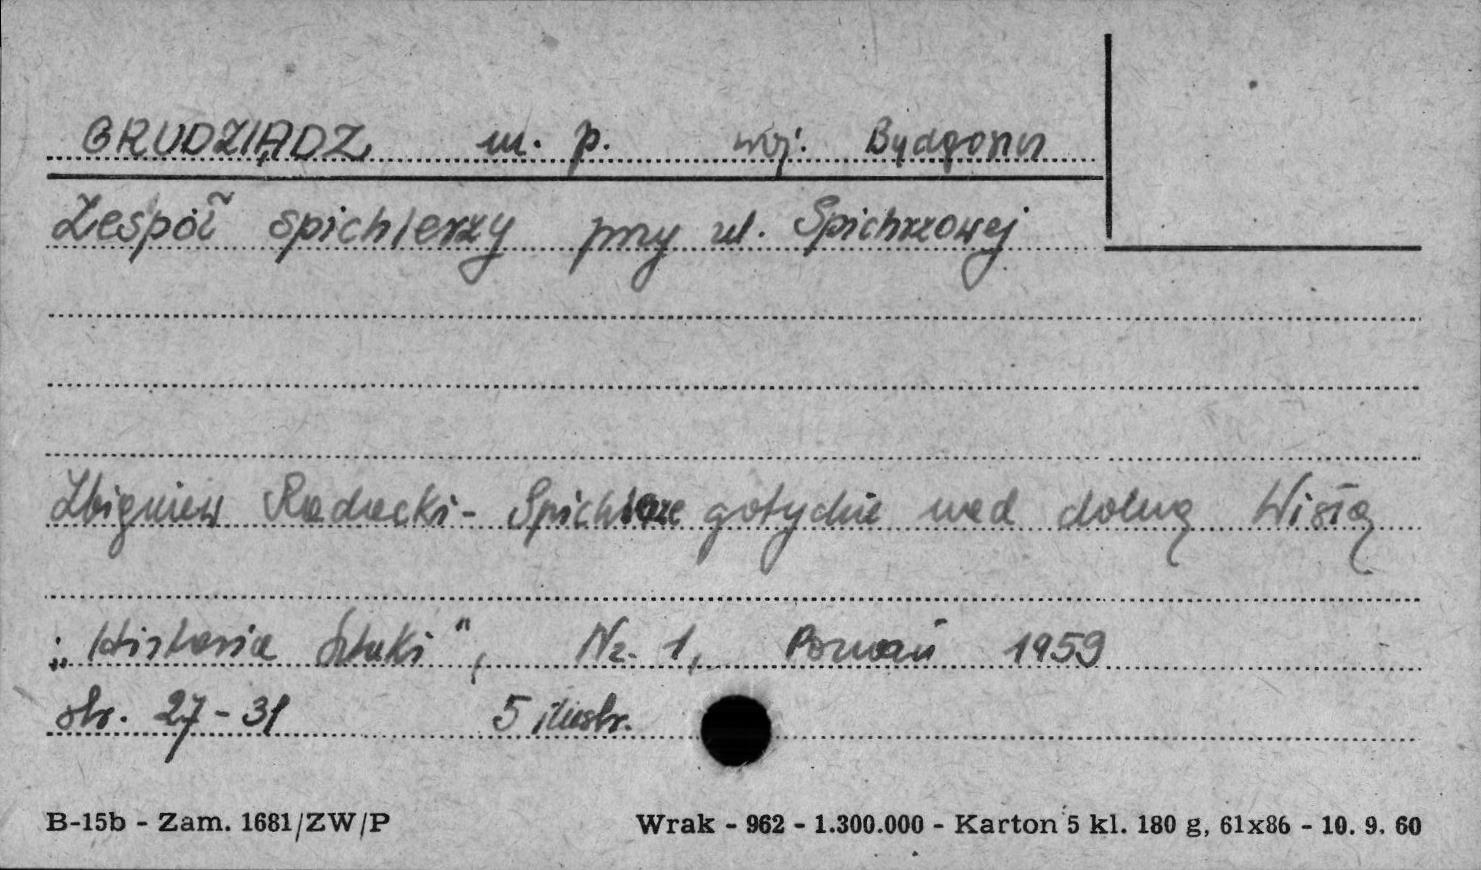 GRUDZIĄDZ m. p. woj. Bydgoszcz
Zespół spichlerzy przy ul. Spichrzowej
Zbigniew Radacki - Spichlerze gotyckie nad dolną Wisłą
„Historia Sztuki", Nr. 1, Poznań 1959
str. 27-31 5 ilustr.
B-15b - Zam. 1681/ZW/P Wrak - 962 - 1.300.000 - Karton 5 kl. 180 g, 61x86 - 10. 9. 60